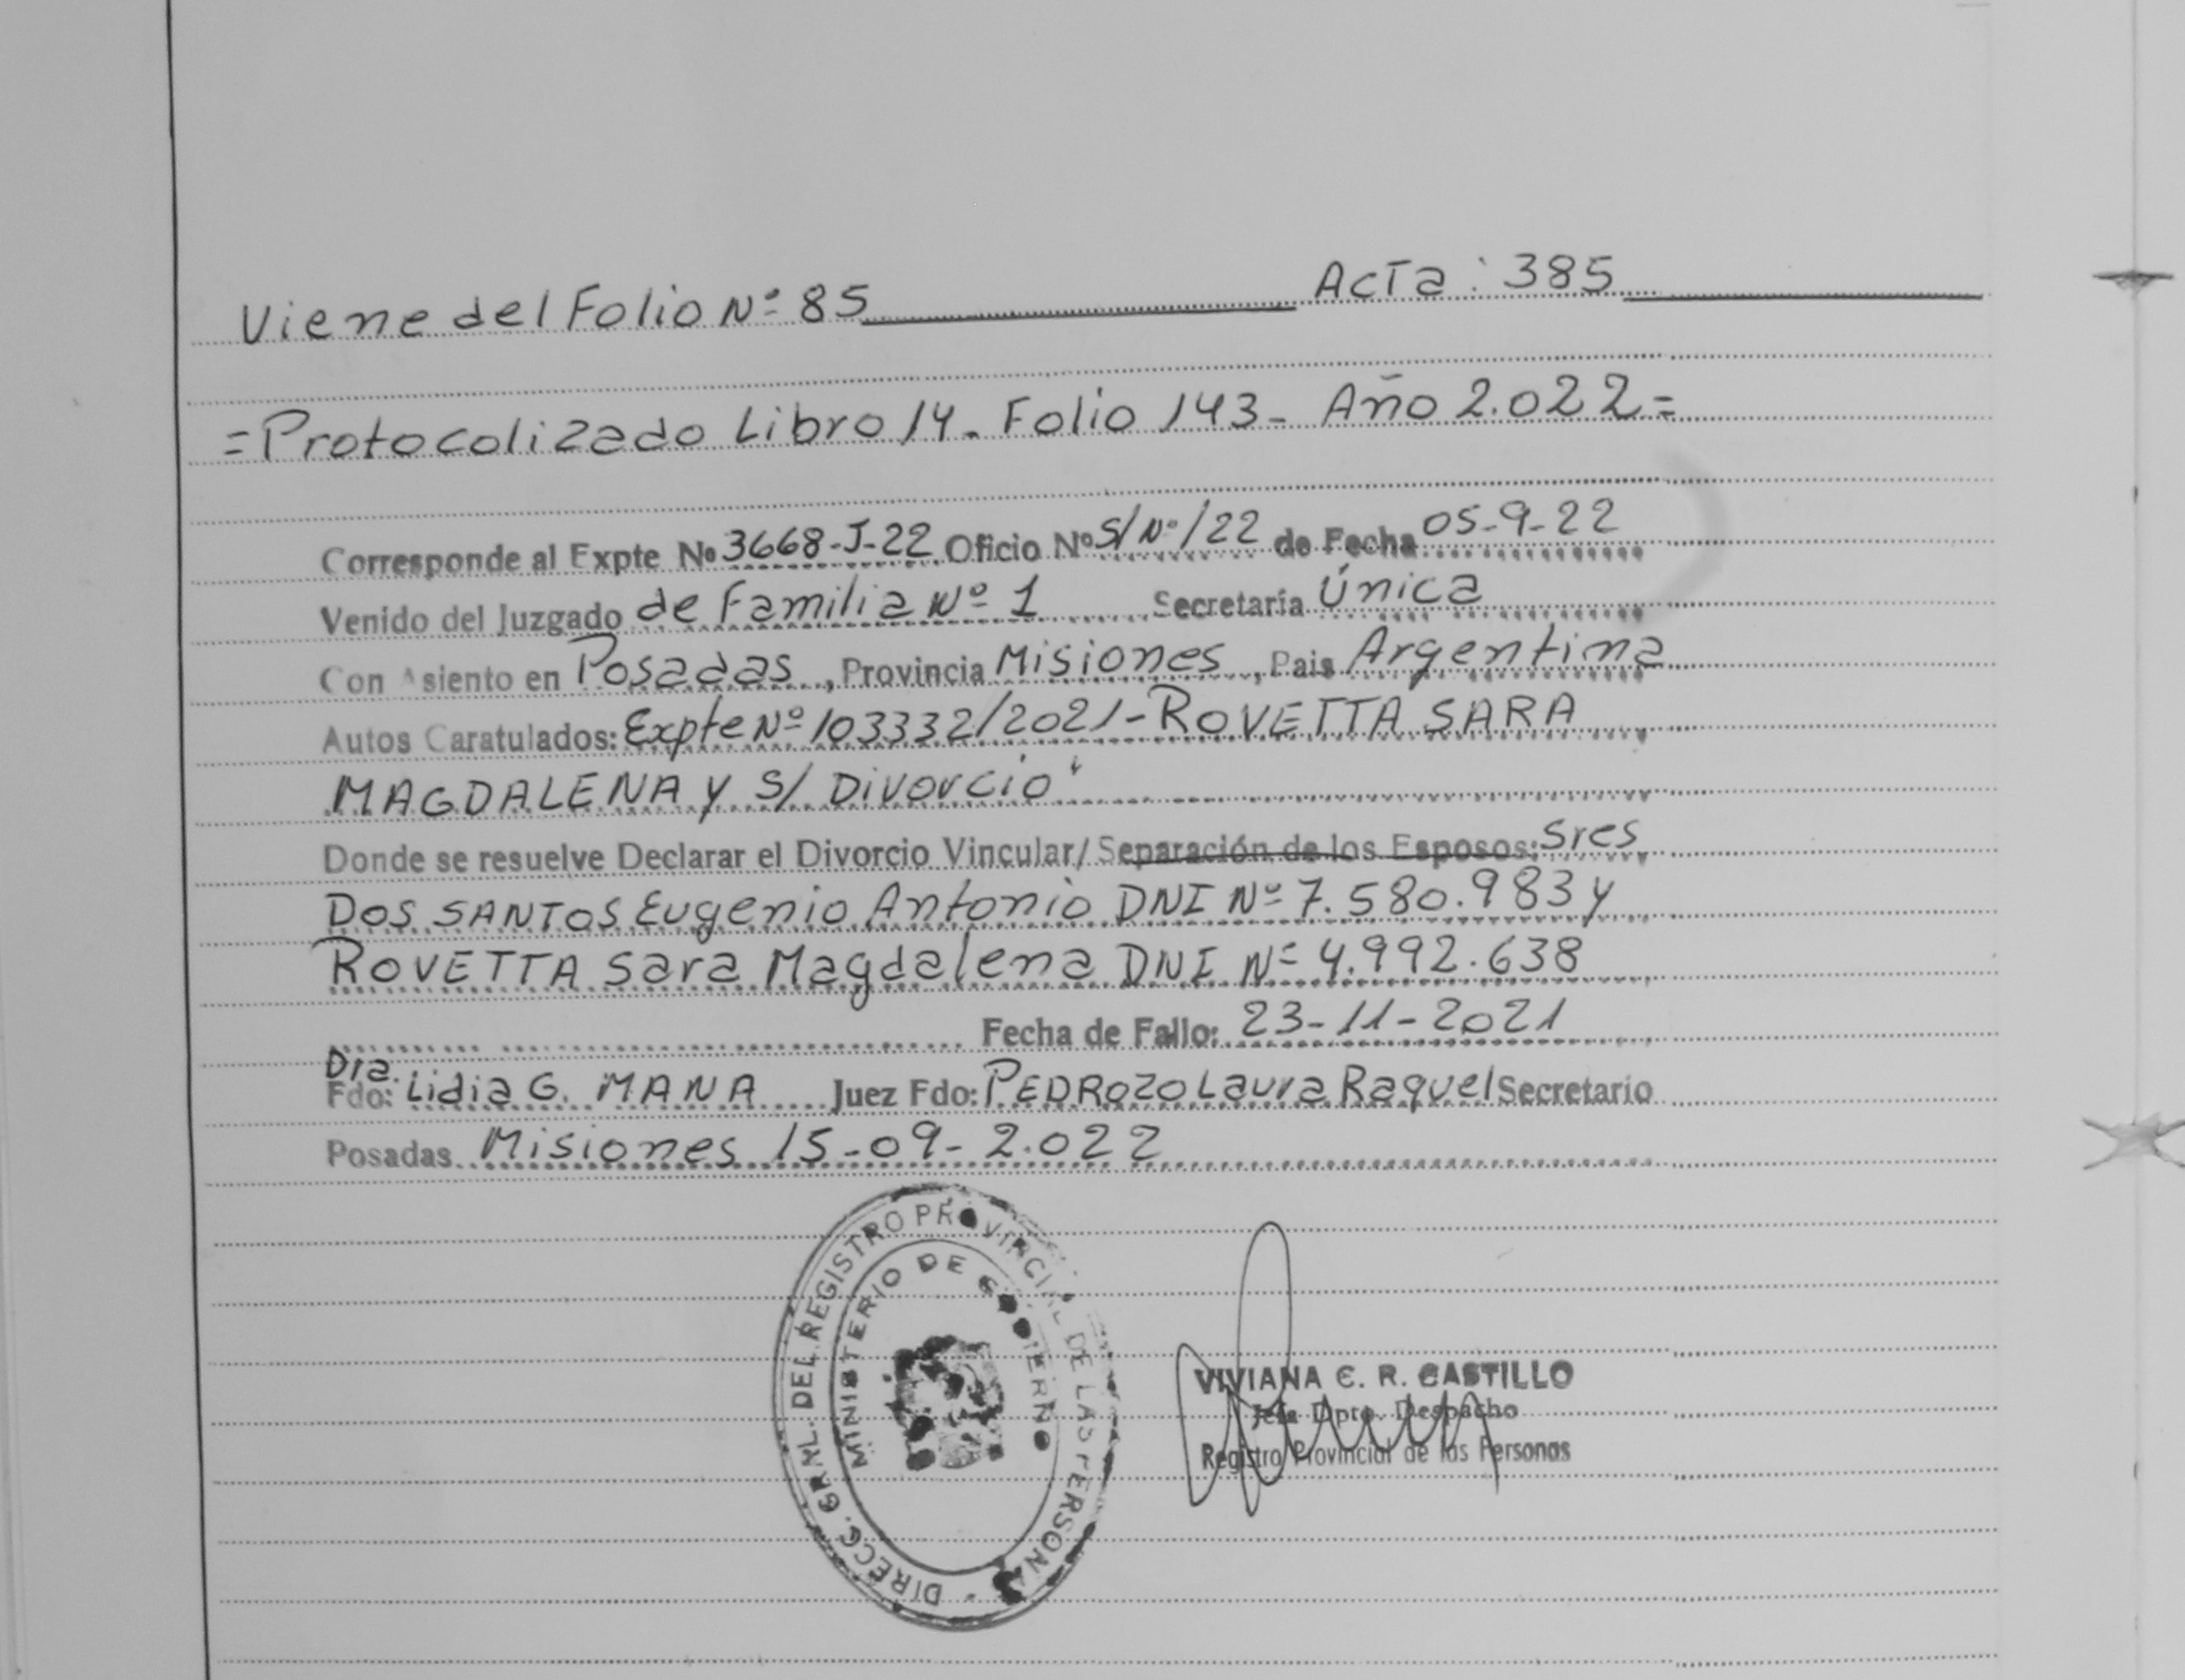 Viene del Folio Nº 85 Acta: 385
=Protocolizado Libro 14. Folio 143- Año 2.022=
Corresponde al Expte Nº 3668-J-22 Oficio Nº S/Nº/22 de Fecha 05-9-22
Venido del Juzgado de Familia Nº 1 Secretaría Única
Con Asiento en Posadas, Provincia Misiones, Pais Argentina
Autos Caratulados: Expte Nº 103332/2021-ROVETTA SARA
MAGDALENA Y S/ Divorcio"
Donde se resuelve Declarar el Divorcio Vincular/ Separación de los Esposos: Sres
DOS SANTOS Eugenio Antonio DNI Nº 7.580.983 y
ROVETTA Sara Magdalena DNI Nº 4.992.638
Fecha de Fallo: 23-11-2021
Dra.
Fdo: Lidia G. MANA Juez Fdo: PEDROZO Laura Raquel Secretario
Posadas Misiones 15-09-2.022
DIRECC. GRAL. DEL REGISTRO PROVINCIAL DE LAS PERSONAS
MINISTERIO DE GOBIERNO
VIVIANA C. R. CASTILLO
Jefa Dpto. Despacho
Registro Provincial de las Personas